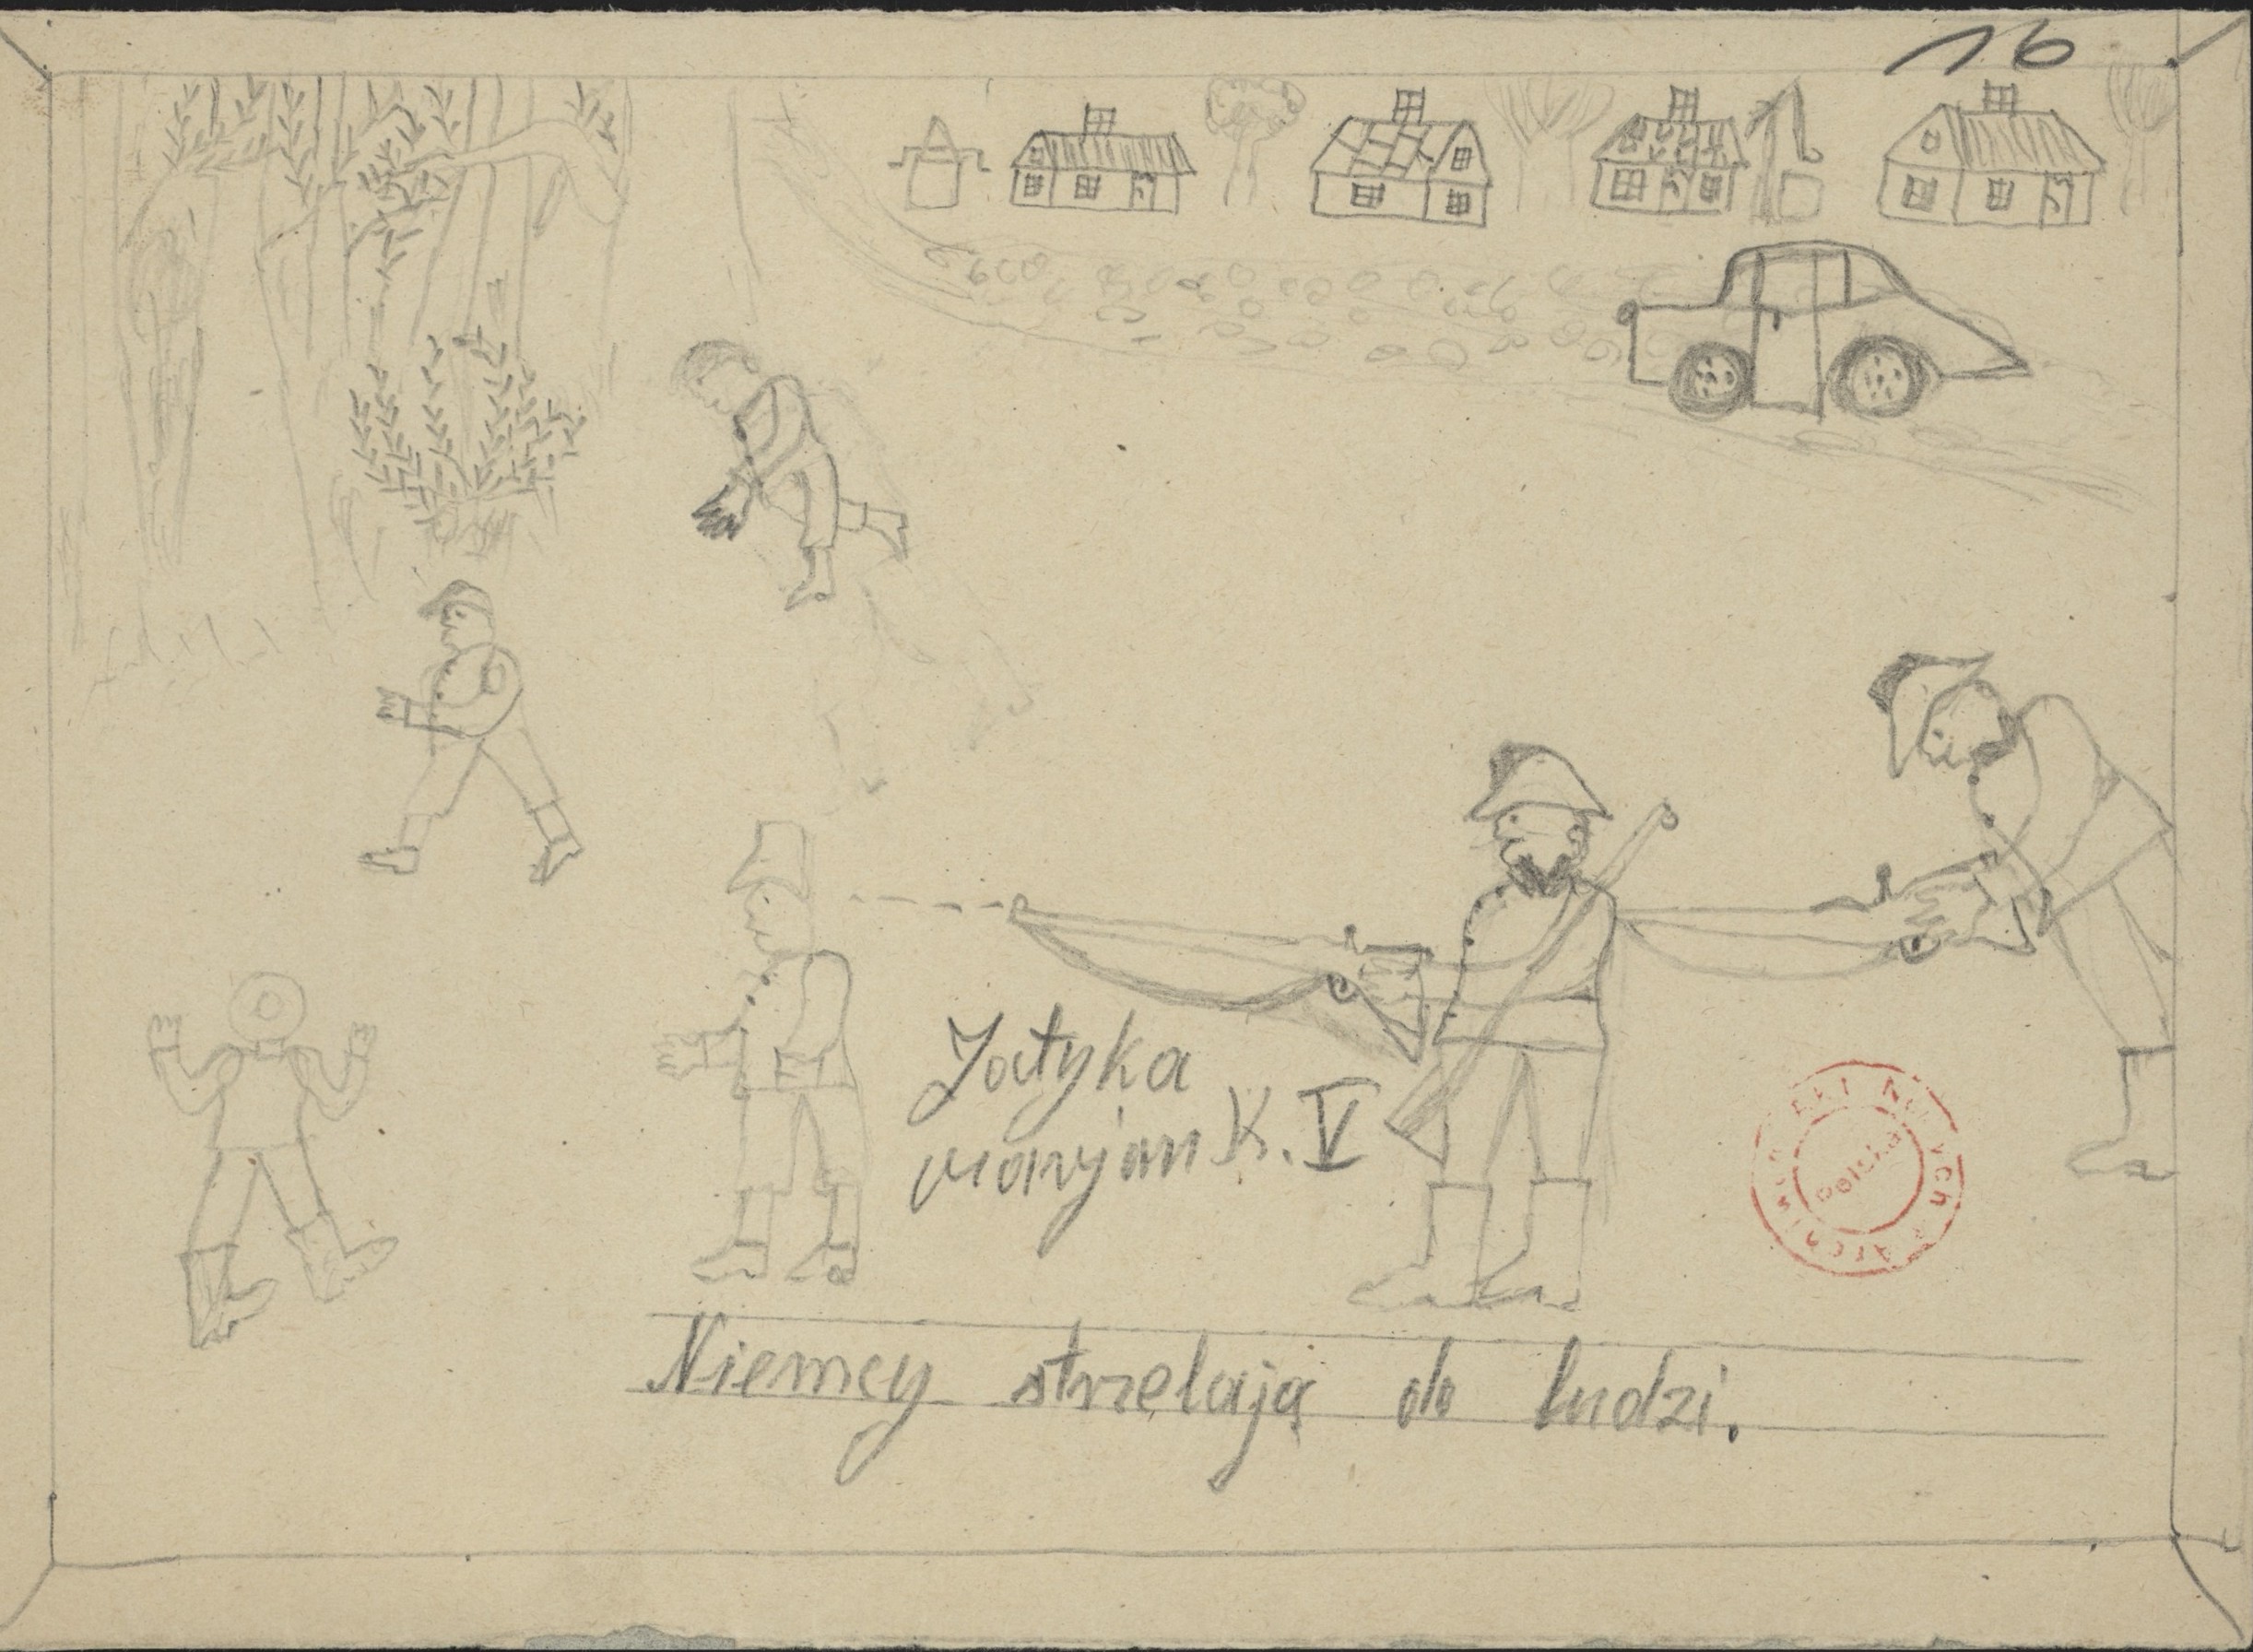 16
Jatyka
maryjan K. V
Niemcy strzelają do ludzi.
Polska